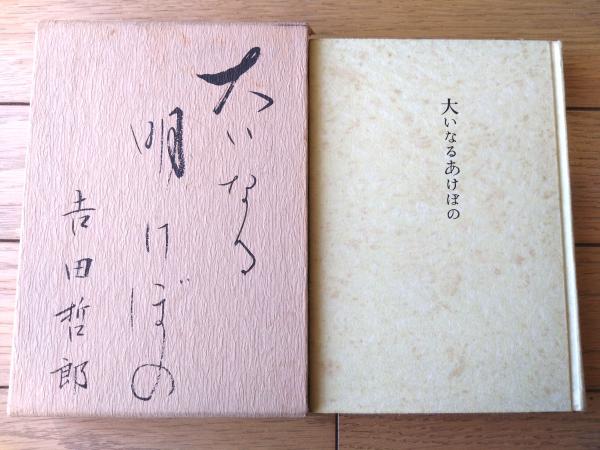 大いなる
明けぼの
吉田哲郎
大いなるあけぼの